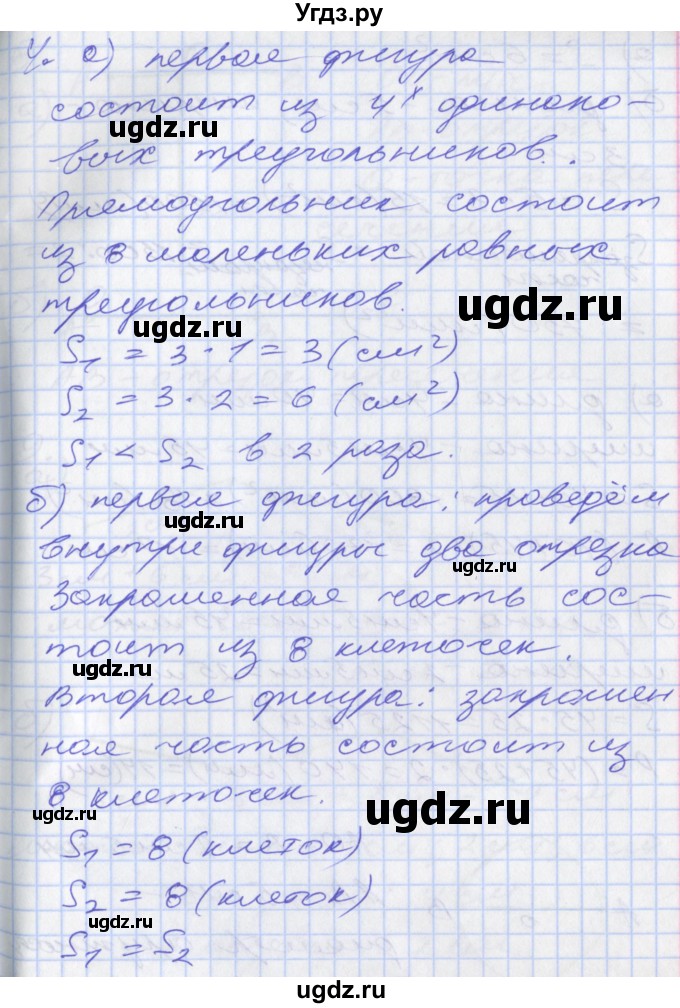 Угдз.ру
4. а) первая фигура
состоит из 4х одинако-
ugdz.ru
вых треугольников.
Прямоугольник состоит
из 8 маленьких равных
ugdz.ru
треугольников.
ugdz.ru
S1 = 3 · 1 = 3 (см2)
S2 = 3 · 2 = 6 (см2)
ugdz.ru
S1 < S2 в 2 раза.
б) первая фигура: проведём
ugdz.ru
внутри фигуры два отрезка
ugdz.ru
Закрашенная часть сос-
тоит из 8 клеточек.
ugdz.ru
Вторая фигура: закрашен
ная часть состоит из
8 клеточек.
ugdz.ru
ugdz.ru
S1 = 8 (клеток)
S2 = 8 (клеток)
ugdz.ru
S1 = S2
ugdz.ru